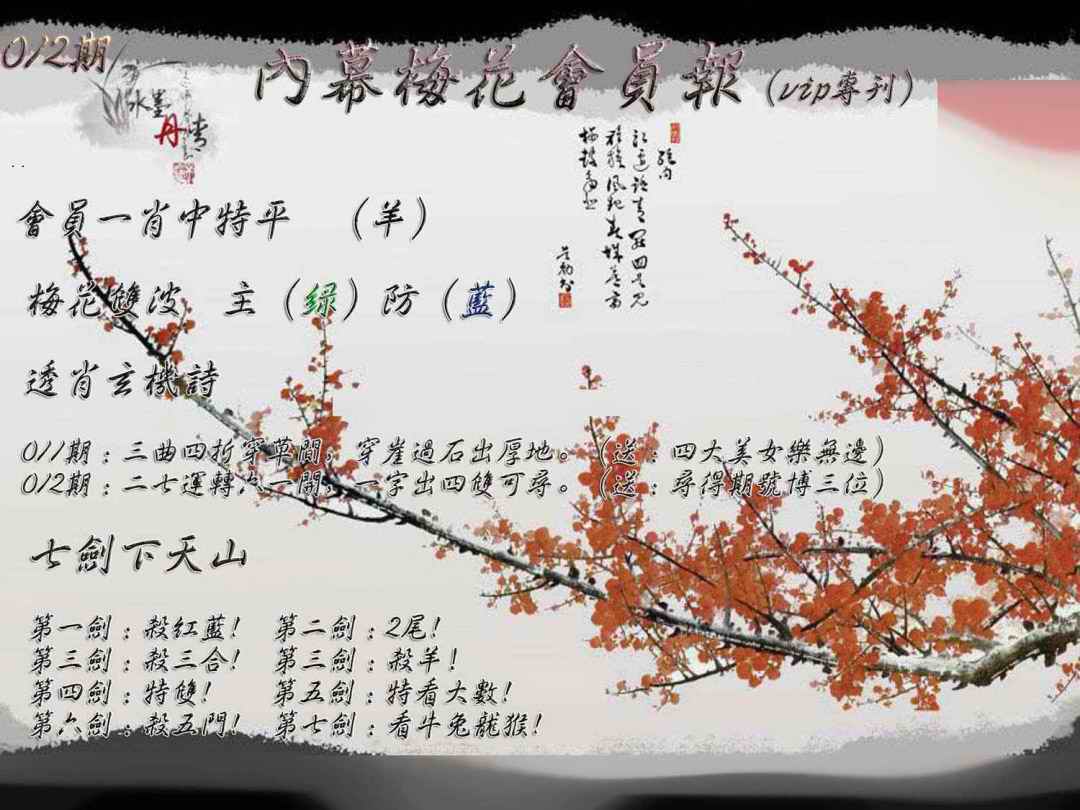 012期
內幕梅花會員報(vip專刊)
水墨
丹青
會員一肖中特平 （羊）
梅花雙波 主（綠）防（藍）
透肖玄機詩
011期：三曲四折穿草間，穿崖過石出厚地。（送：四大美女樂無邊）
012期：二七運轉六一開，一字出四雙可尋。（送：尋得期號博三位）
七劍下天山
第一劍：殺紅藍! 第二劍：2尾!
第三劍：殺三合! 第三劍：殺羊!
第四劍：特雙! 第五劍：特看大數!
第六劍：殺五門! 第七劍：看牛兔龍猴!